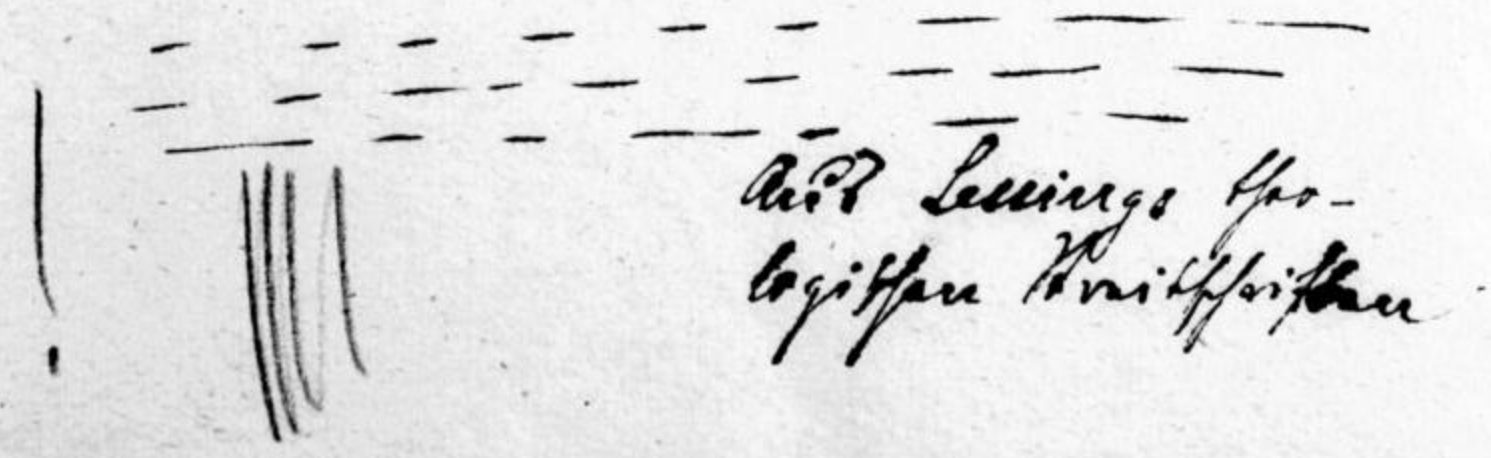 Aus Lessings theo-
logischen Streitschriften